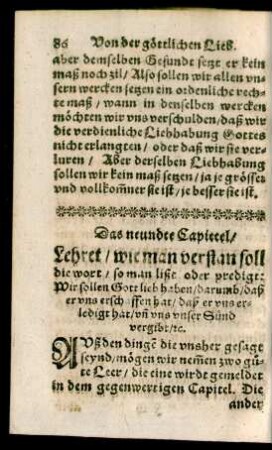 86 Von der göttlichen Lieb.
aber demselben Gesundt setzt er kein
maß noch zil / Also sollen wir allen vn-
sern wercken setzen ein ordenliche rech-
te maß / wann in denselben wercken
möchten wir vns verschulden / daß wir
die verdienliche Liebhabung Gottes
nicht erlangten / oder daß wir sie ver-
luren / Aber derselben Liebhabung
sollen wir kein maß setzen / ja je grösser
vnd vollkom̃ner sie ist / je besser sie ist.
Das neundte Capittel /
Lehret / wie man verstan soll
die wort / so man lißt oder predigt:
Wir sollen Gott lieb haben / darumb / daß
er vns erschaffen hat / daß er vns er-
ledigt hat / vñ vns vnser Sünd
vergibt / ꝛc.
AVß den dingẽ die vnsher gesagt
seynd / mögen wir nem̃en zwo gů-
te Leer / die eine wirdt gemeldet
in dem gegenwertigen Capitel. Die
ander